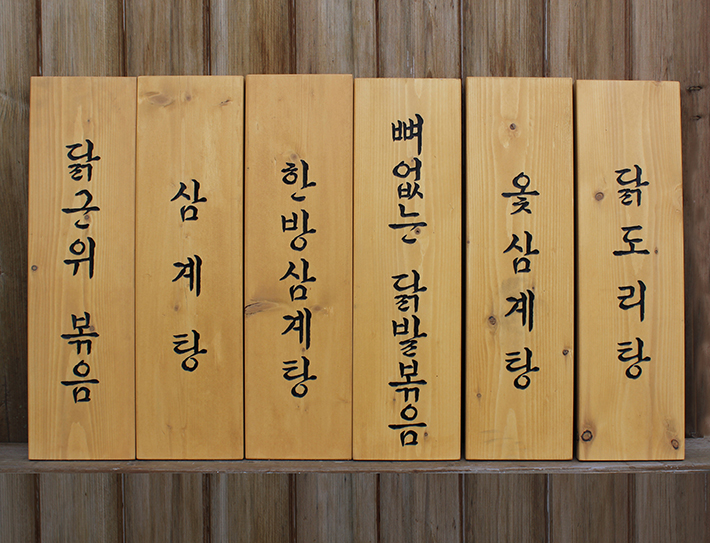 닭근위 볶음
삼계탕
한방삼계탕
뼈없는 닭발볶음
옻삼계탕
닭도리탕